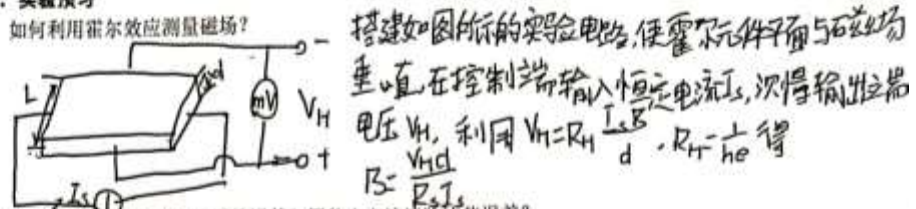 实验预习
如何利用霍尔效应测量磁场?
搭建如图所示的实验电路,使霍尔元件平面与磁场
垂直,在控制端输入恒定电流Is,测得输出端
电压 VH, 利用 VH=RH IsB/d , RH=1/ne 得
B= VHd/RsIs
L
d
mV
VH
-
+
Is